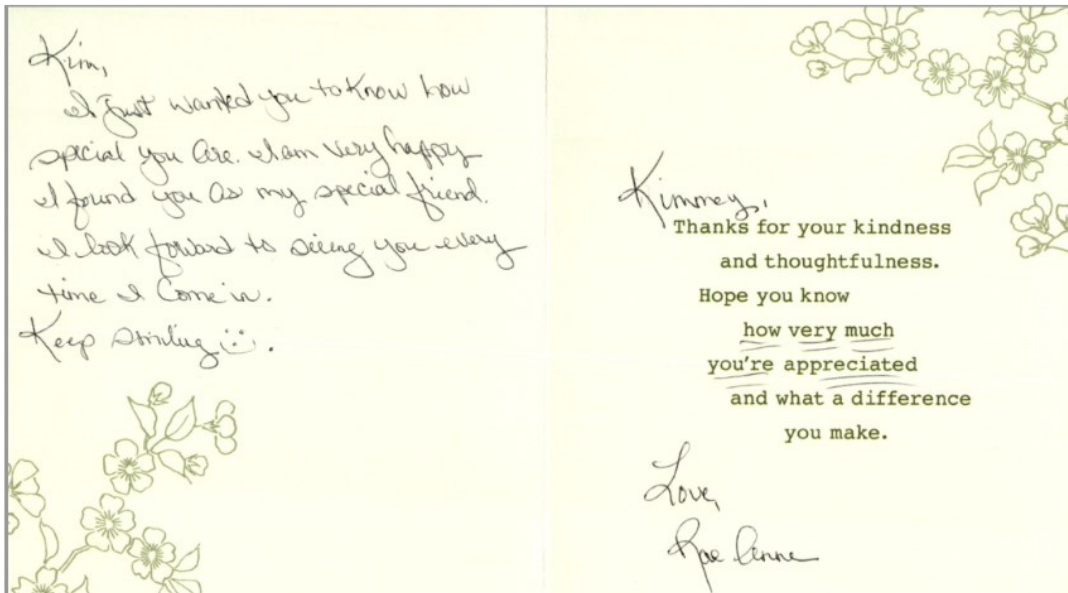 Kim,
I Just wanted you to Know how
special you are. I am very happy
I found you as my special friend.
I look forward to seeing you every
time I Come in.
Keep smiling :).
Kimmey,
Thanks for your kindness
and thoughtfulness.
Hope you know
how very much
you're appreciated
and what a difference
you make.
Love,
Rae Anne